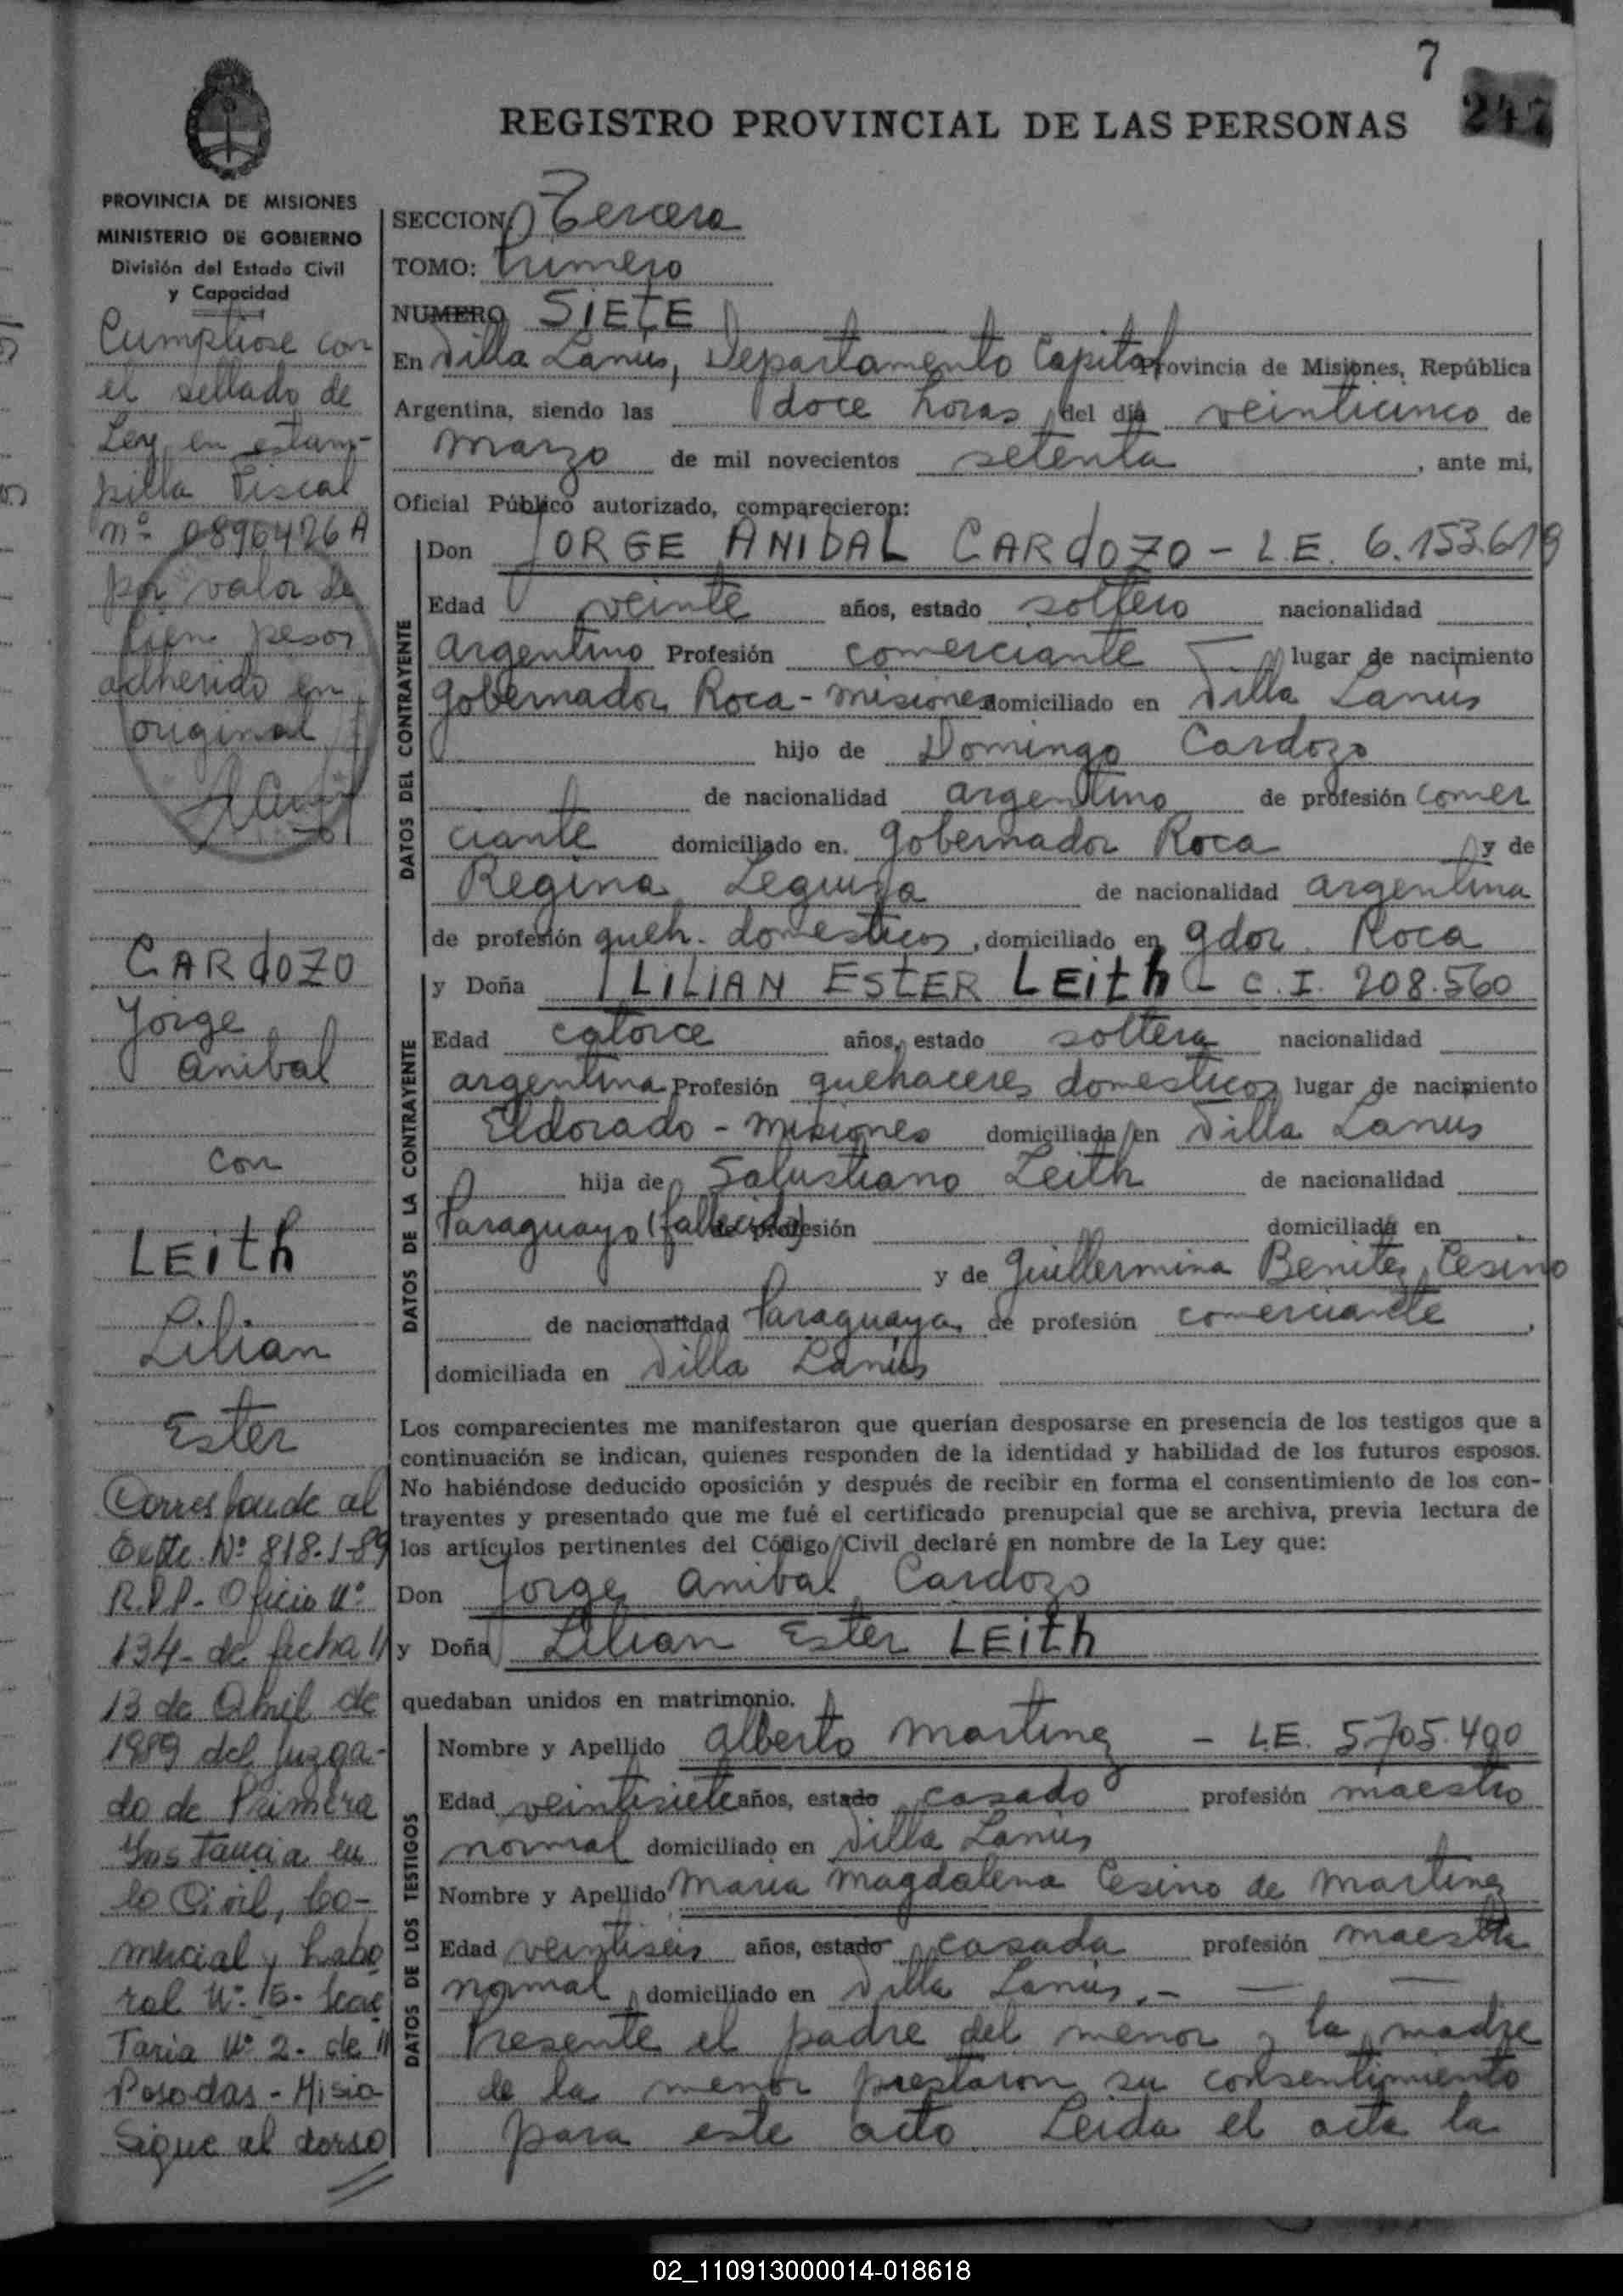 7
247
REGISTRO PROVINCIAL DE LAS PERSONAS
PROVINCIA DE MISIONES
MINISTERIO DE GOBIERNO
División del Estado Civil
y Capacidad
Cumplióse con
el sellado de
Ley en estam-
pilla Fiscal
nº 0896426 A
por valor de
cien pesos
adherido en
original
CARdOZO
Jorge
Anibal
con
LEith
Lilian
Ester
Corresponde al
Expte. Nº 818-1-89
R.P.P. - Oficio Nº
134- de fecha
13 de Abril de
1989 del Juzga-
do de Primera
Instancia en
lo Civil, Co-
mercial y Labo
ral Nº 5- Secre
Taria Nº 2- de
Posadas - Misio
Sigue al dorso
SECCION: Tercera
TOMO: Primero
NUMERO SIETE
En Villa Lanús, Departamento Capital Provincia de Misiones, República
Argentina, siendo las doce horas del día veinticinco de
marzo de mil novecientos setenta, ante mi,
Oficial Público autorizado, comparecieron:
DATOS DEL CONTRAYENTE
Don JORGE ANIBAL CARdOZO - L.E. 6.153.619
Edad veinte años, estado soltero nacionalidad
argentino Profesión comerciante lugar de nacimiento
Gobernador Roca - Misiones domiciliado en Villa Lanus
hijo de Domingo Cardozo
de nacionalidad argentino de profesión comer
ciante domiciliado en. Gobernador Roca y de
Regina Leguiza de nacionalidad argentina
de profesión queh. domesticos, domiciliado en gdor. Roca
DATOS DE LA CONTRAYENTE
y Doña LILIAN ESTER LEith - C.I. 208.560
Edad catorce años, estado soltera nacionalidad
argentina Profesión quehaceres domesticos lugar de nacimiento
Eldorado - Misiones domiciliada en Villa Lanus
hija de Salustiano Leith de nacionalidad
Paraguayo (fallecido) de profesión domiciliada en
y de Guillermina Benitez Cesino
de nacionalidad Paraguaya, de profesión comerciante,
domiciliada en Villa Lanús
Los comparecientes me manifestaron que querían desposarse en presencia de los testigos que a
continuación se indican, quienes responden de la identidad y habilidad de los futuros esposos.
No habiéndose deducido oposición y después de recibir en forma el consentimiento de los con-
trayentes y presentado que me fué el certificado prenupcial que se archiva, previa lectura de
los artículos pertinentes del Código Civil declaré en nombre de la Ley que:
Don Jorge Anibal Cardozo
y Doña Lilian Ester LEith
quedaban unidos en matrimonio.
DATOS DE LOS TESTIGOS
Nombre y Apellido Alberto Martinez - L.E. 5.705.490
Edad veintisiete años, estado casado profesión maestro
normal domiciliado en Villa Lanús
Nombre y Apellido Maria Magdalena Cesino de Martinez
Edad veintiseis años, estado casada profesión maestra
normal domiciliado en Villa Lanús.-
Presente el padre del menor y la madre
de la menor prestaron su consentimiento
para este acto. Leida el acta la
02_110913000014-018618